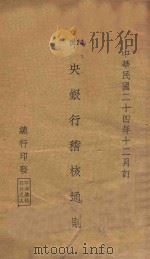 中華民國二十四年十二月訂
央銀行稽核通則
總行印發